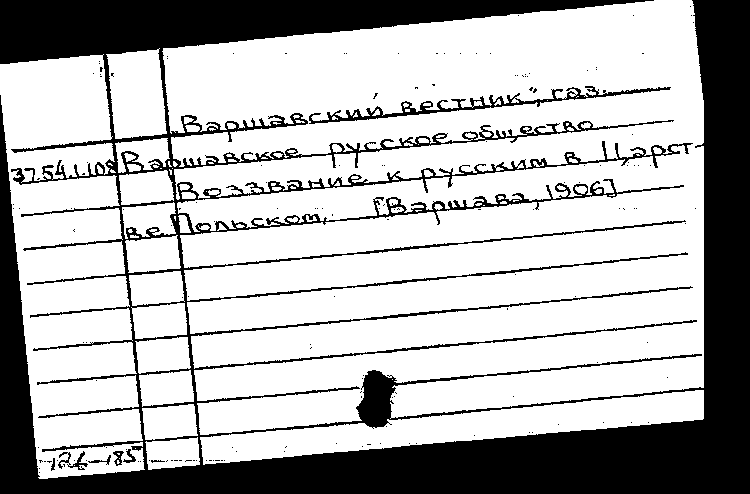 „Варшавский вестник", газ.
37.54.1.108 Варшавское русское общество
Воззвание к русским в Царст-
ве Польском. [Варшава, 1906]
126-185